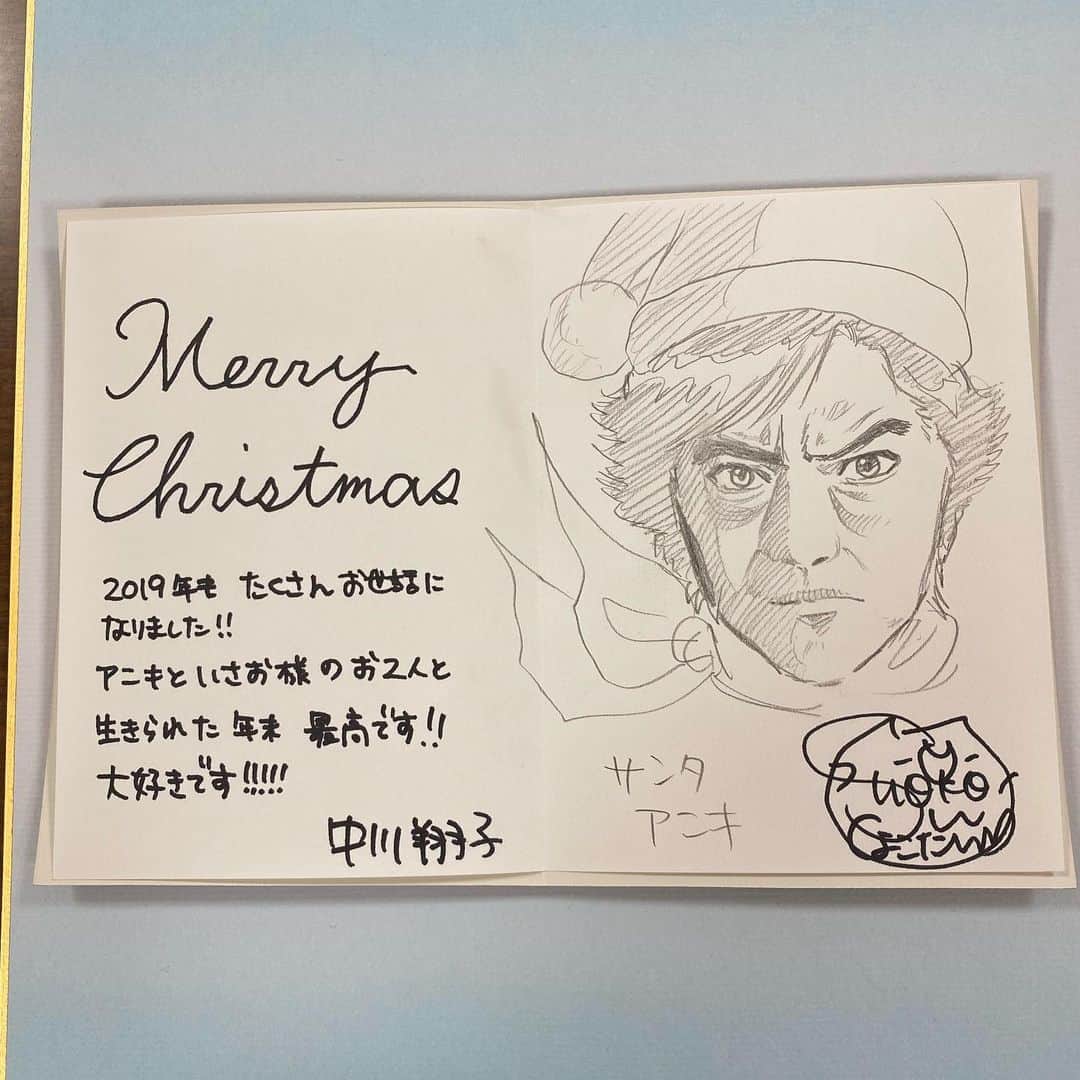 Merry
Christmas
2019年も たくさん お世話に
なりました!!
アニキと いさお様 の お2人と
生きられた 年末 最高です!!
大好きです!!!!!
中川翔子
サンタ
アニキ
しょこたん